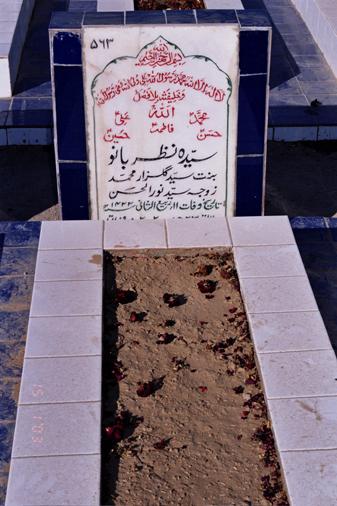 ۵۶۳
بسم الله الرحمن الرحیم
لا اله الا الله محمد رسول الله علی ولی الله وصی رسول الله
وخلیفته بلا فصل
الله
محمد علی
فاطمہ
حسن حسین
سیدہ نظر بانو
بنت سید گلزار محمد
زوجہ سید نور الحسن
تاریخ وفات ۱۱ ربیع الثانی ۱۴۲۳
15 1 03